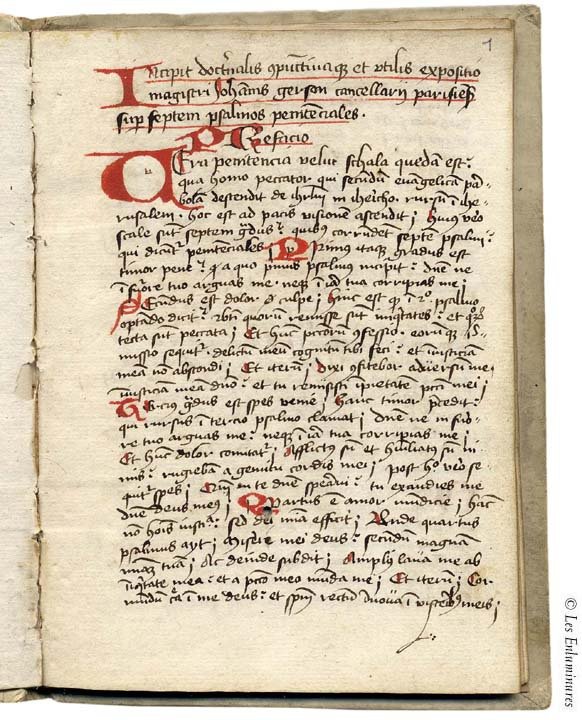 1
Incipit doctrinalis instructiva et utilis expositio
magistri Johannis gerson cancellarij parisiensis
sup septem psalmos penitenciales.
Prefacio
Vera penitencia velut schala quedam est
qua homo peccator qui secundum euangelicam para
bolam descendit de ihrlm in iherico. rursum in ihe
rusalem. hoc est ad pacis visionem ascendit. huius vero
scale sunt septem gradus quibus correspondent septem psalmi
qui dicuntur penitenciales. Primus itaque gradus est
timor pene. a quo primus psalmus incipit. dne ne
in furore tuo arguas me. neque in ira tua corripias me
Secundus est dolor de culpa. hinc est psalmo
optando dicitur. Beati quorum remisse sunt iniquitates et quorum
tecta sunt peccata. Et hinc peccatorum confessio. eorumque
missio sequitur. delictum meum cognitum tibi feci. et iniusticiam
mea non abscondi. Et iterum. dixi confitebor adversum me
iniusticiam mea dno. et tu remisisti impietatem pcci mei
Tercius gradus est spes venie. hanc timor precedit
qui rursus in tercio psalmo clamat. dne ne in furo
re tuo arguas me. neque in ira tua corripias me
Et hunc dolor comitatur. Afflictus sum et humiliatus sum ni
mis. rugiebam a gemitu cordis mei. post hoc vero se
quitur spes. Quoniam in te dne speravi. tu exaudies me
dne deus meus. Quartus est amor mundicie. hanc
non hominis iusticia sed dei misericordia efficit. Unde quartus
psalmus ayt. Miserere mei deus. secundum magnam
misericordiam tuam. Ac deinde subdit. Amplius lava me ab
iniquitate mea. et a pcco meo munda me. Et iterum. Cor
mundum crea in me deus. et spiritum rectum innova in visceribus meis
© Les Enluminures